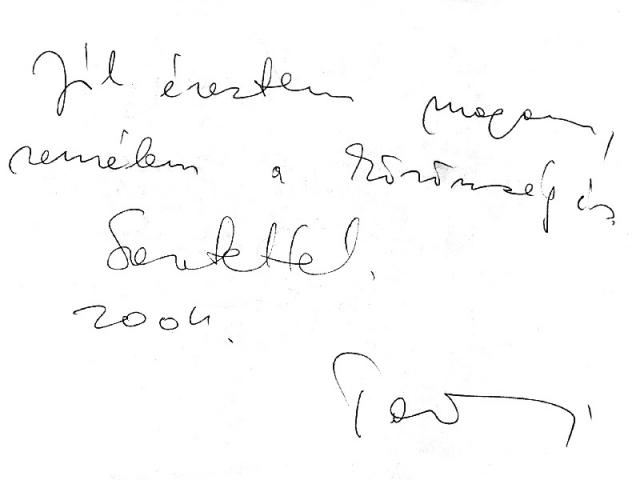 Jól éreztem magam,
remélem a közönség is.
Szeretettel.
2004.